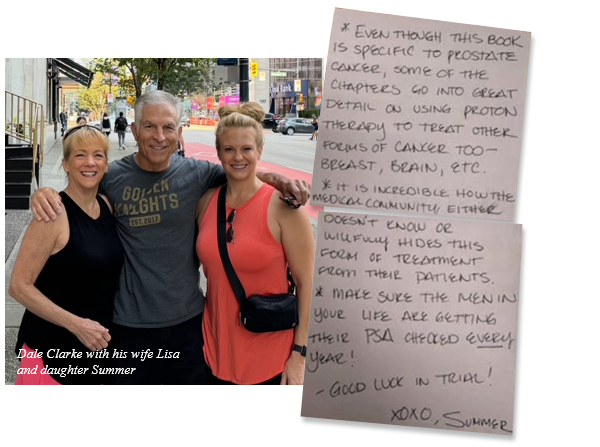 GOLDEN
KNIGHTS
EST. 2017
Bank
Dale Clarke with his wife Lisa
and daughter Summer
* EVEN THOUGH THIS BOOK
IS SPECIFIC TO PROSTATE
CANCER, SOME OF THE
CHAPTERS GO INTO GREAT
DETAIL ON USING PROTON
THERAPY TO TREAT OTHER
FORMS OF CANCER TOO—
BREAST, BRAIN, ETC.
* IT IS INCREDIBLE HOW THE
MEDICAL COMMUNITY EITHER
DOESN'T KNOW OR
WILLFULLY HIDES THIS
FORM OF TREATMENT
FROM THEIR PATIENTS.
* MAKE SURE THE MEN IN
YOUR LIFE ARE GETTING
THEIR PSA CHECKED EVERY
YEAR!
- GOOD LUCK IN TRIAL!
XOXO, SUMMER